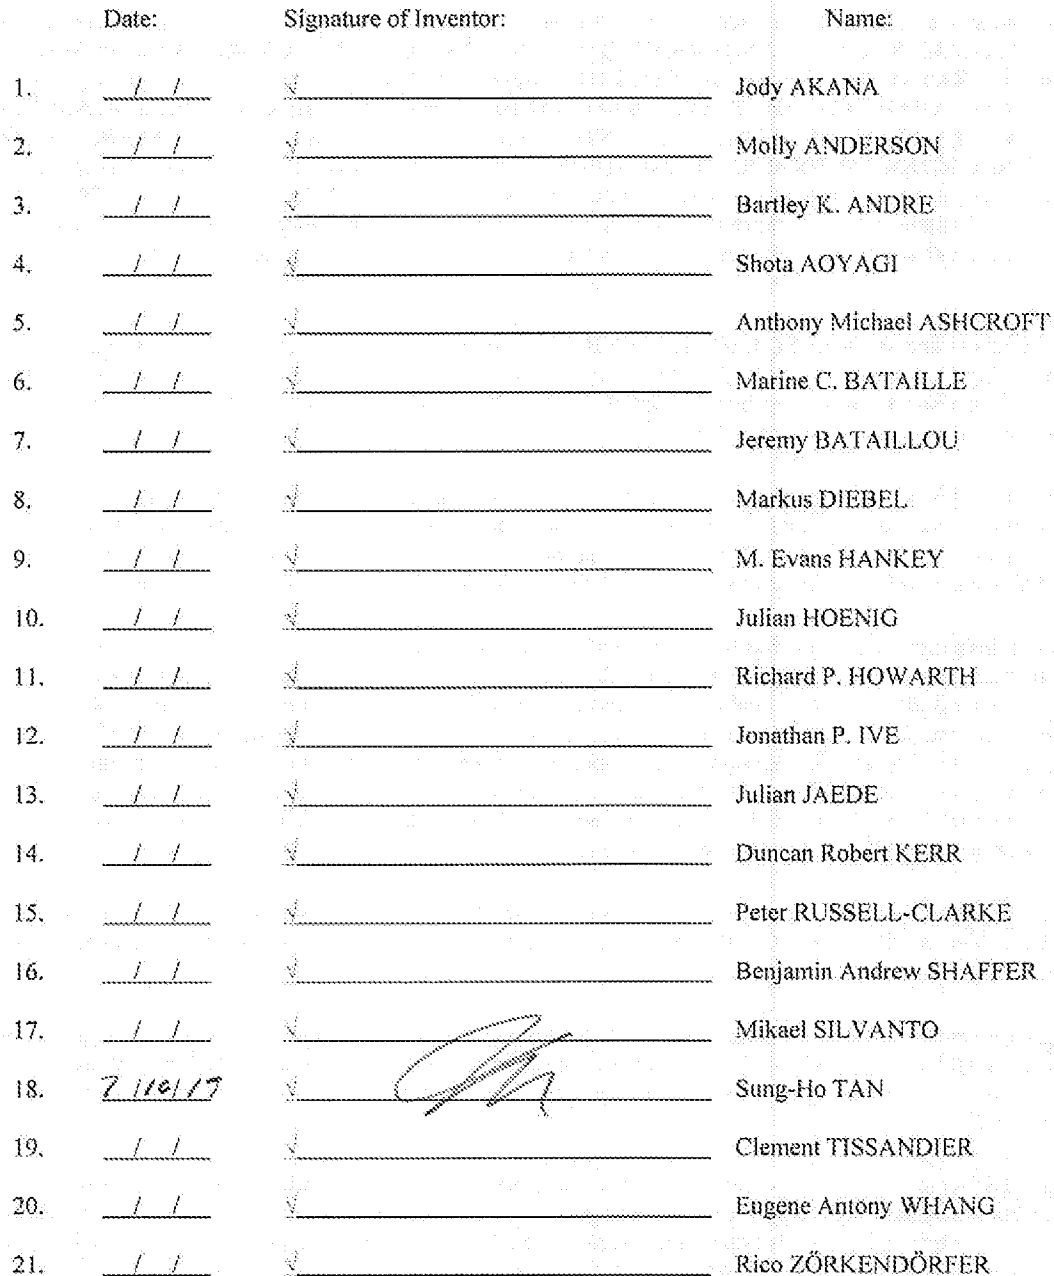 Date: Signature of Inventor: Name:
1. / / √ Jody AKANA
2. / / √ Molly ANDERSON
3. / / √ Bartley K. ANDRE
4. / / √ Shota AOYAGI
5. / / √ Anthony Michael ASHCROFT
6. / / √ Marine C. BATAILLE
7. / / √ Jeremy BATAILLOU
8. / / √ Markus DIEBEL
9. / / √ M. Evans HANKEY
10. / / √ Julian HOENIG
11. / / √ Richard P. HOWARTH
12. / / √ Jonathan P. IVE
13. / / √ Julian JAEDE
14. / / √ Duncan Robert KERR
15. / / √ Peter RUSSELL-CLARKE
16. / / √ Benjamin Andrew SHAFFER
17. / / √ Mikael SILVANTO
18. 7 /10/ √ Sung-Ho TAN
19. / / √ Clement TISSANDIER
20. / / √ Eugene Antony WHANG
21. / / √ Rico ZÖRKENDÖRFER